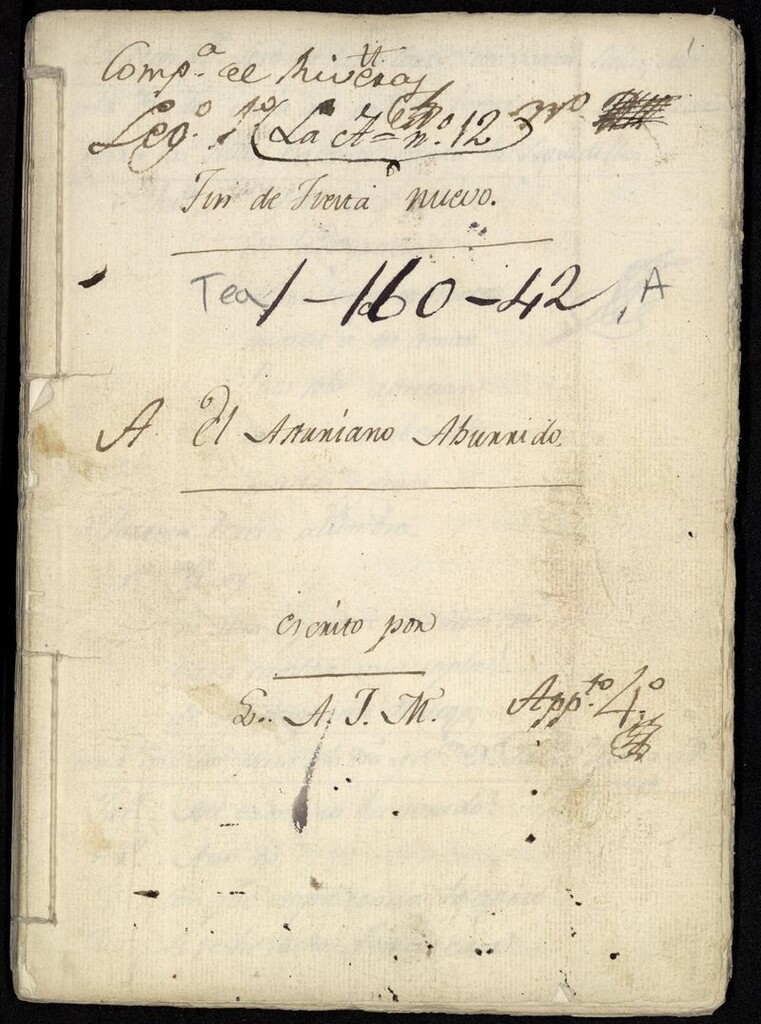 1
Comp.ª de Riveras
Leg.º 1º La A= n.º 12
Fin de Fiesta nuevo.
Tea 1-160-42, A
A El Asturiano Aburrido.
escrito por
L. A. J. M. App.to 4.º